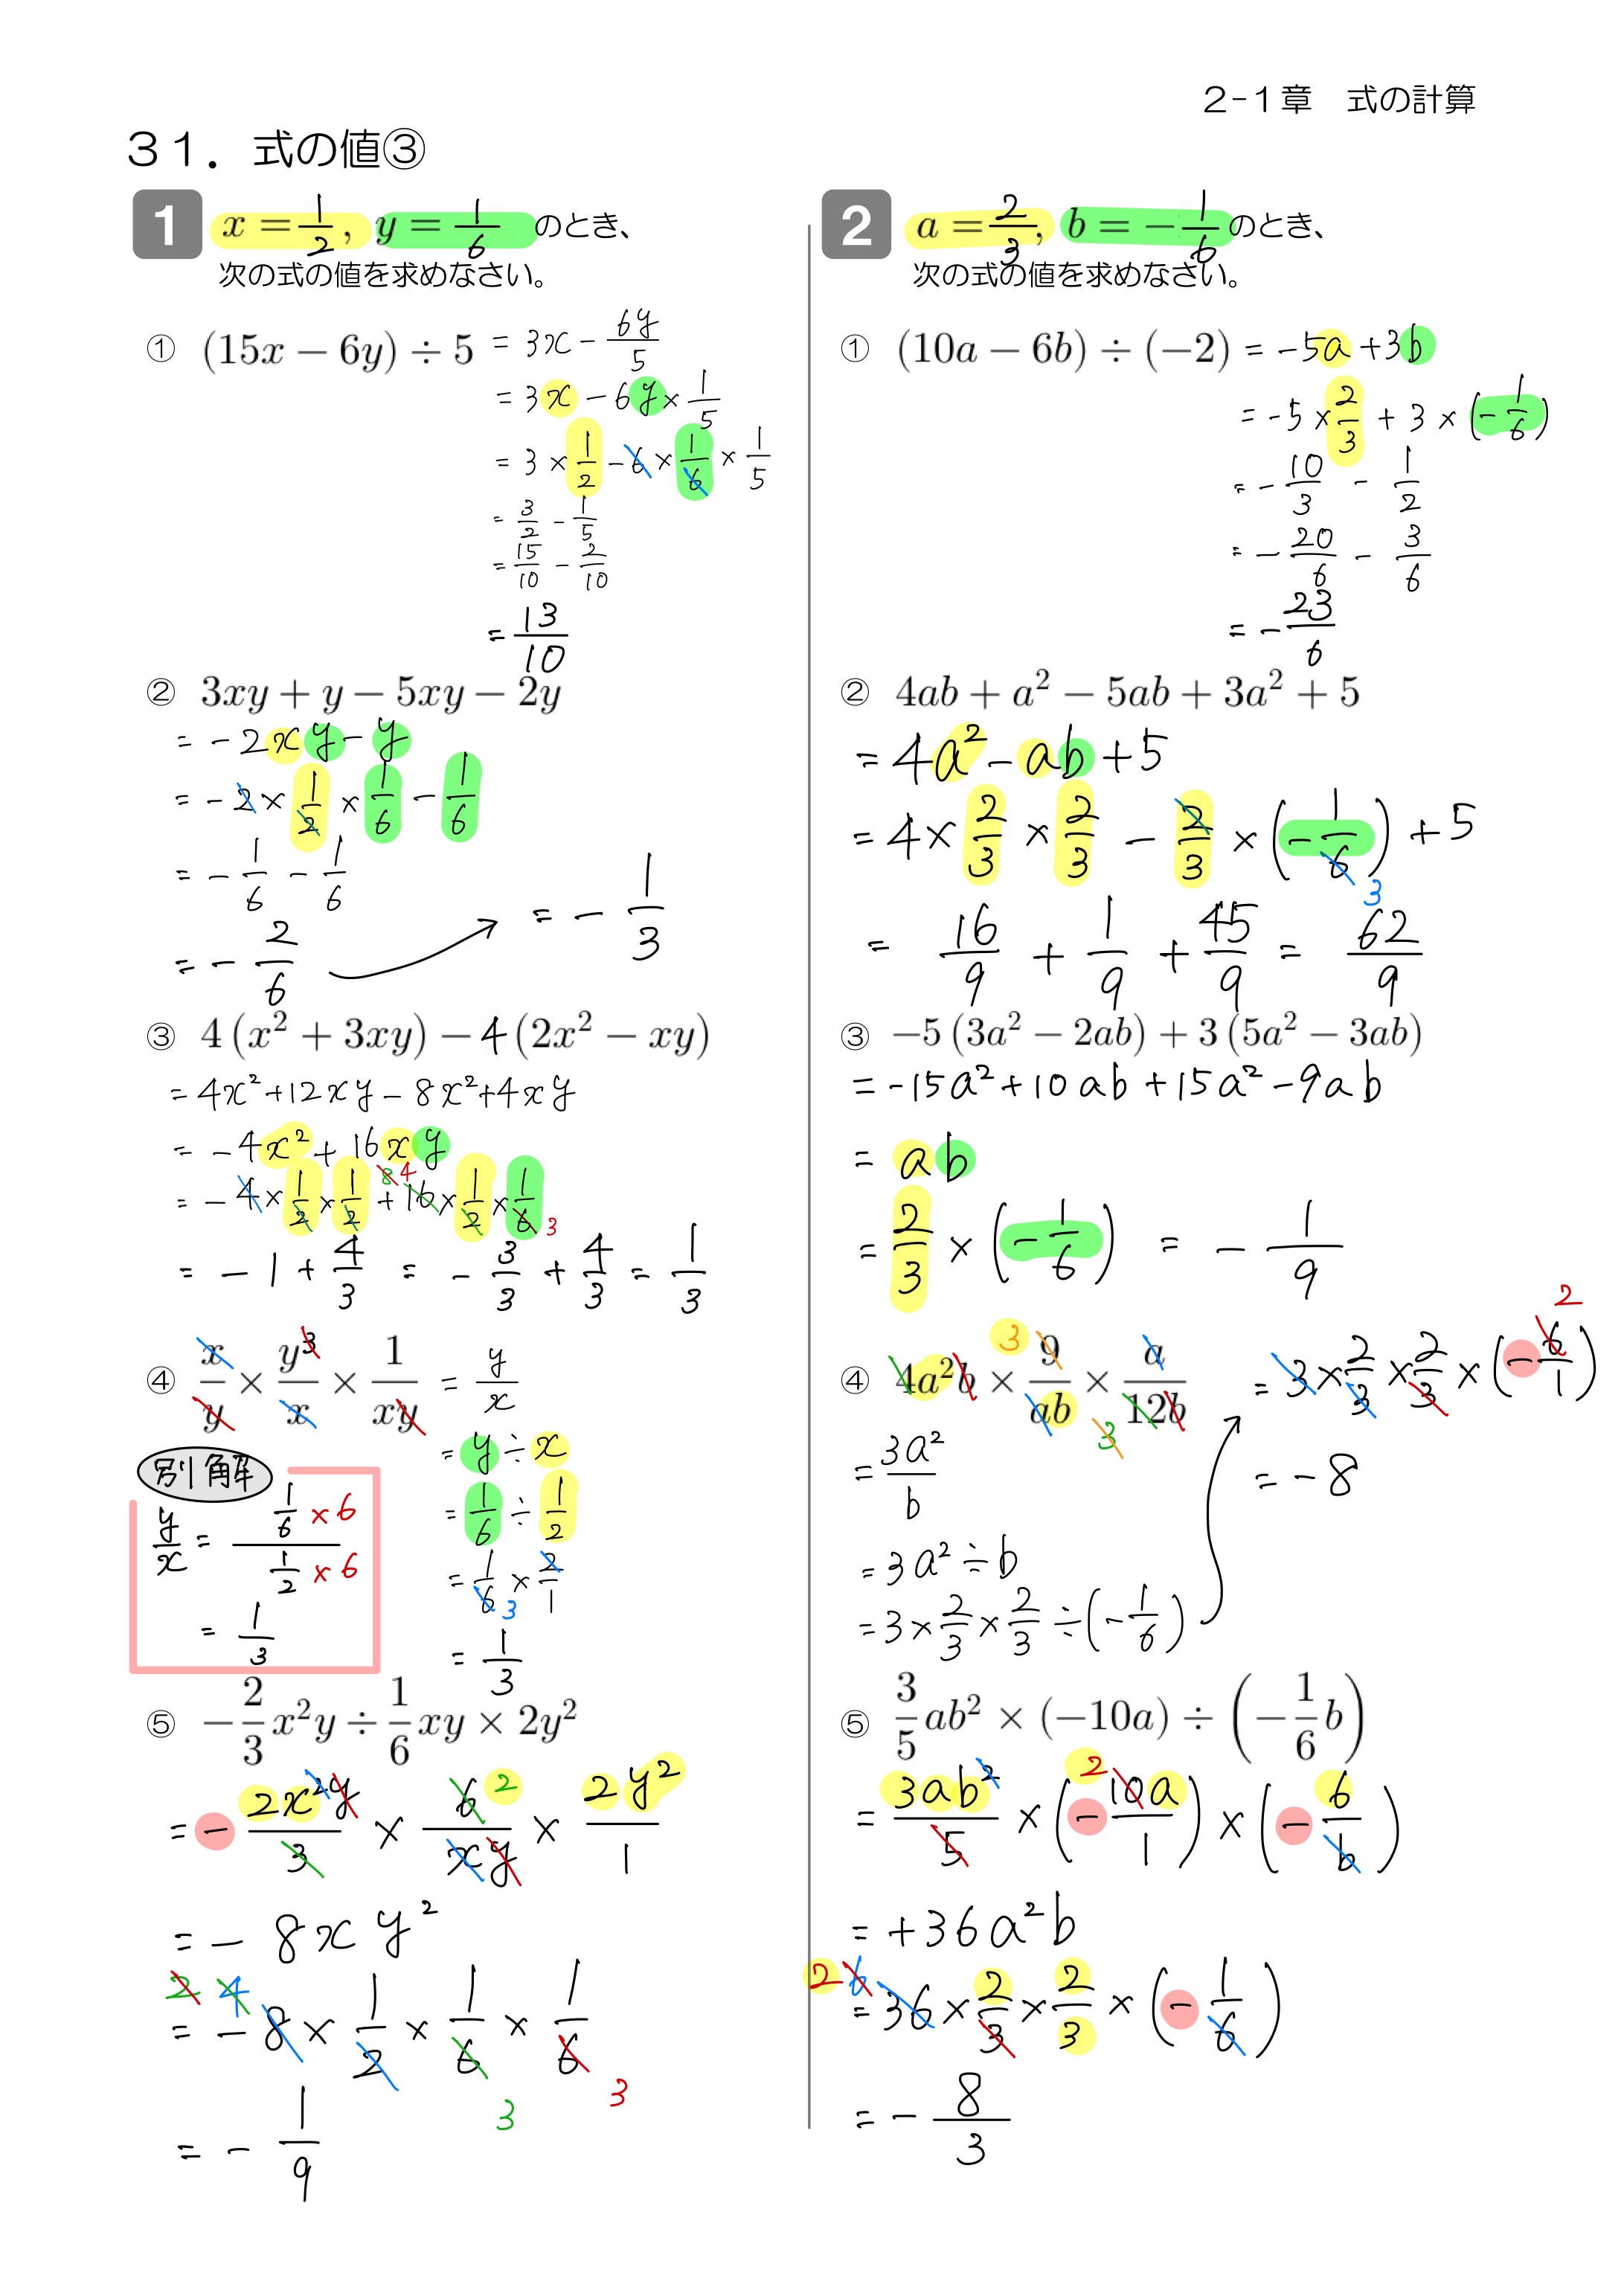 2-1章　式の計算
31．式の値③
1 x = 1/2, y = 1/6 のとき、
次の式の値を求めなさい。
① (15x − 6y) ÷ 5 = 3x − 6y/5
= 3x − 6y × 1/5
= 3 × 1/2 − 6 × 1/6 × 1/5
= 3/2 − 1/5
= 15/10 − 2/10
= 13/10
② 3xy + y − 5xy − 2y
= −2xy − y
= −2 × 1/2 × 1/6 − 1/6
= −1/6 − 1/6
= −2/6 → = −1/3
③ 4(x² + 3xy) − 4(2x² − xy)
= 4x² + 12xy − 8x² + 4xy
= −4x² + 16xy
8 4
= −4 × 1/2 × 1/2 + 16 × 1/2 × 1/6 3
= −1 + 4/3 = −3/3 + 4/3 = 1/3
④ x/y × y³/x × 1/xy = y/x
= y ÷ x
= 1/6 ÷ 1/2
= 1/6 × 2/1
3
= 1/3
別解
y/x = (1/6 × 6)/(1/2 × 6)
= 1/3
⑤ −2/3 x²y ÷ 1/6 xy × 2y²
= − 2x²y/3 × 6/xy × 2y²/1
2
= −8xy²
2 4
= −8 × 1/2 × 1/6 × 1/6
3 3
= −1/9
2 a = 2/3, b = −1/6 のとき、
次の式の値を求めなさい。
① (10a − 6b) ÷ (−2) = −5a + 3b
= −5 × 2/3 + 3 × (−1/6)
= −10/3 − 1/2
= −20/6 − 3/6
= −23/6
② 4ab + a² − 5ab + 3a² + 5
= 4a² − ab + 5
= 4 × 2/3 × 2/3 − 2/3 × (−1/6) + 5
3
= 16/9 + 1/9 + 45/9 = 62/9
③ −5(3a² − 2ab) + 3(5a² − 3ab)
= −15a² + 10ab + 15a² − 9ab
= ab
= 2/3 × (−1/6) = −1/9
3
④ 4a²b × 9/ab × a/12b
3
= 3a²/b
= 3a² ÷ b
= 3 × 2/3 × 2/3 ÷ (−1/6)
2
= 3 × 2/3 × 2/3 × (−6/1)
= −8
⑤ 3/5 ab² × (−10a) ÷ (−1/6 b)
2
= 3ab²/5 × (−10a/1) × (−6/b)
= +36a²b
2 6
= 36 × 2/3 × 2/3 × (−1/6)
= −8/3